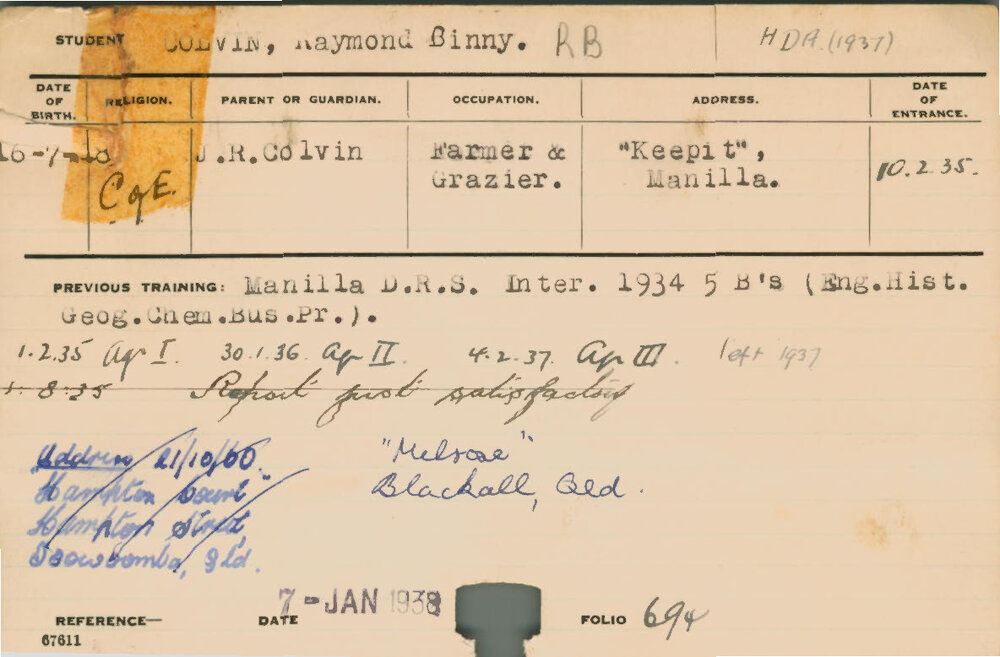 STUDENT COLVIN, Raymond Binny. RB HDA. (1937)
DATE OF BIRTH. RELIGION. PARENT OR GUARDIAN. OCCUPATION. ADDRESS. DATE OF ENTRANCE.
16-7-18 C of E. J.R.Colvin Farmer & Grazier. "Keepit", Manilla. 10.2.35.
PREVIOUS TRAINING: Manilla D.R.S. Inter. 1934 5 B's (Eng.Hist.
Geog.Chem.Bus.Pr.).
1.2.35 Agr I. 30.1.36. Agr II. 4.2.37. Agr III. left 1937
1.8.35 Report just satisfactory
Address 21/10/60. "Melrose"
"Hampton Court" Blackall, Qld.
Hampton Street,
Toowoomba, Qld.
7-JAN 1938
REFERENCE— DATE FOLIO 694
67611